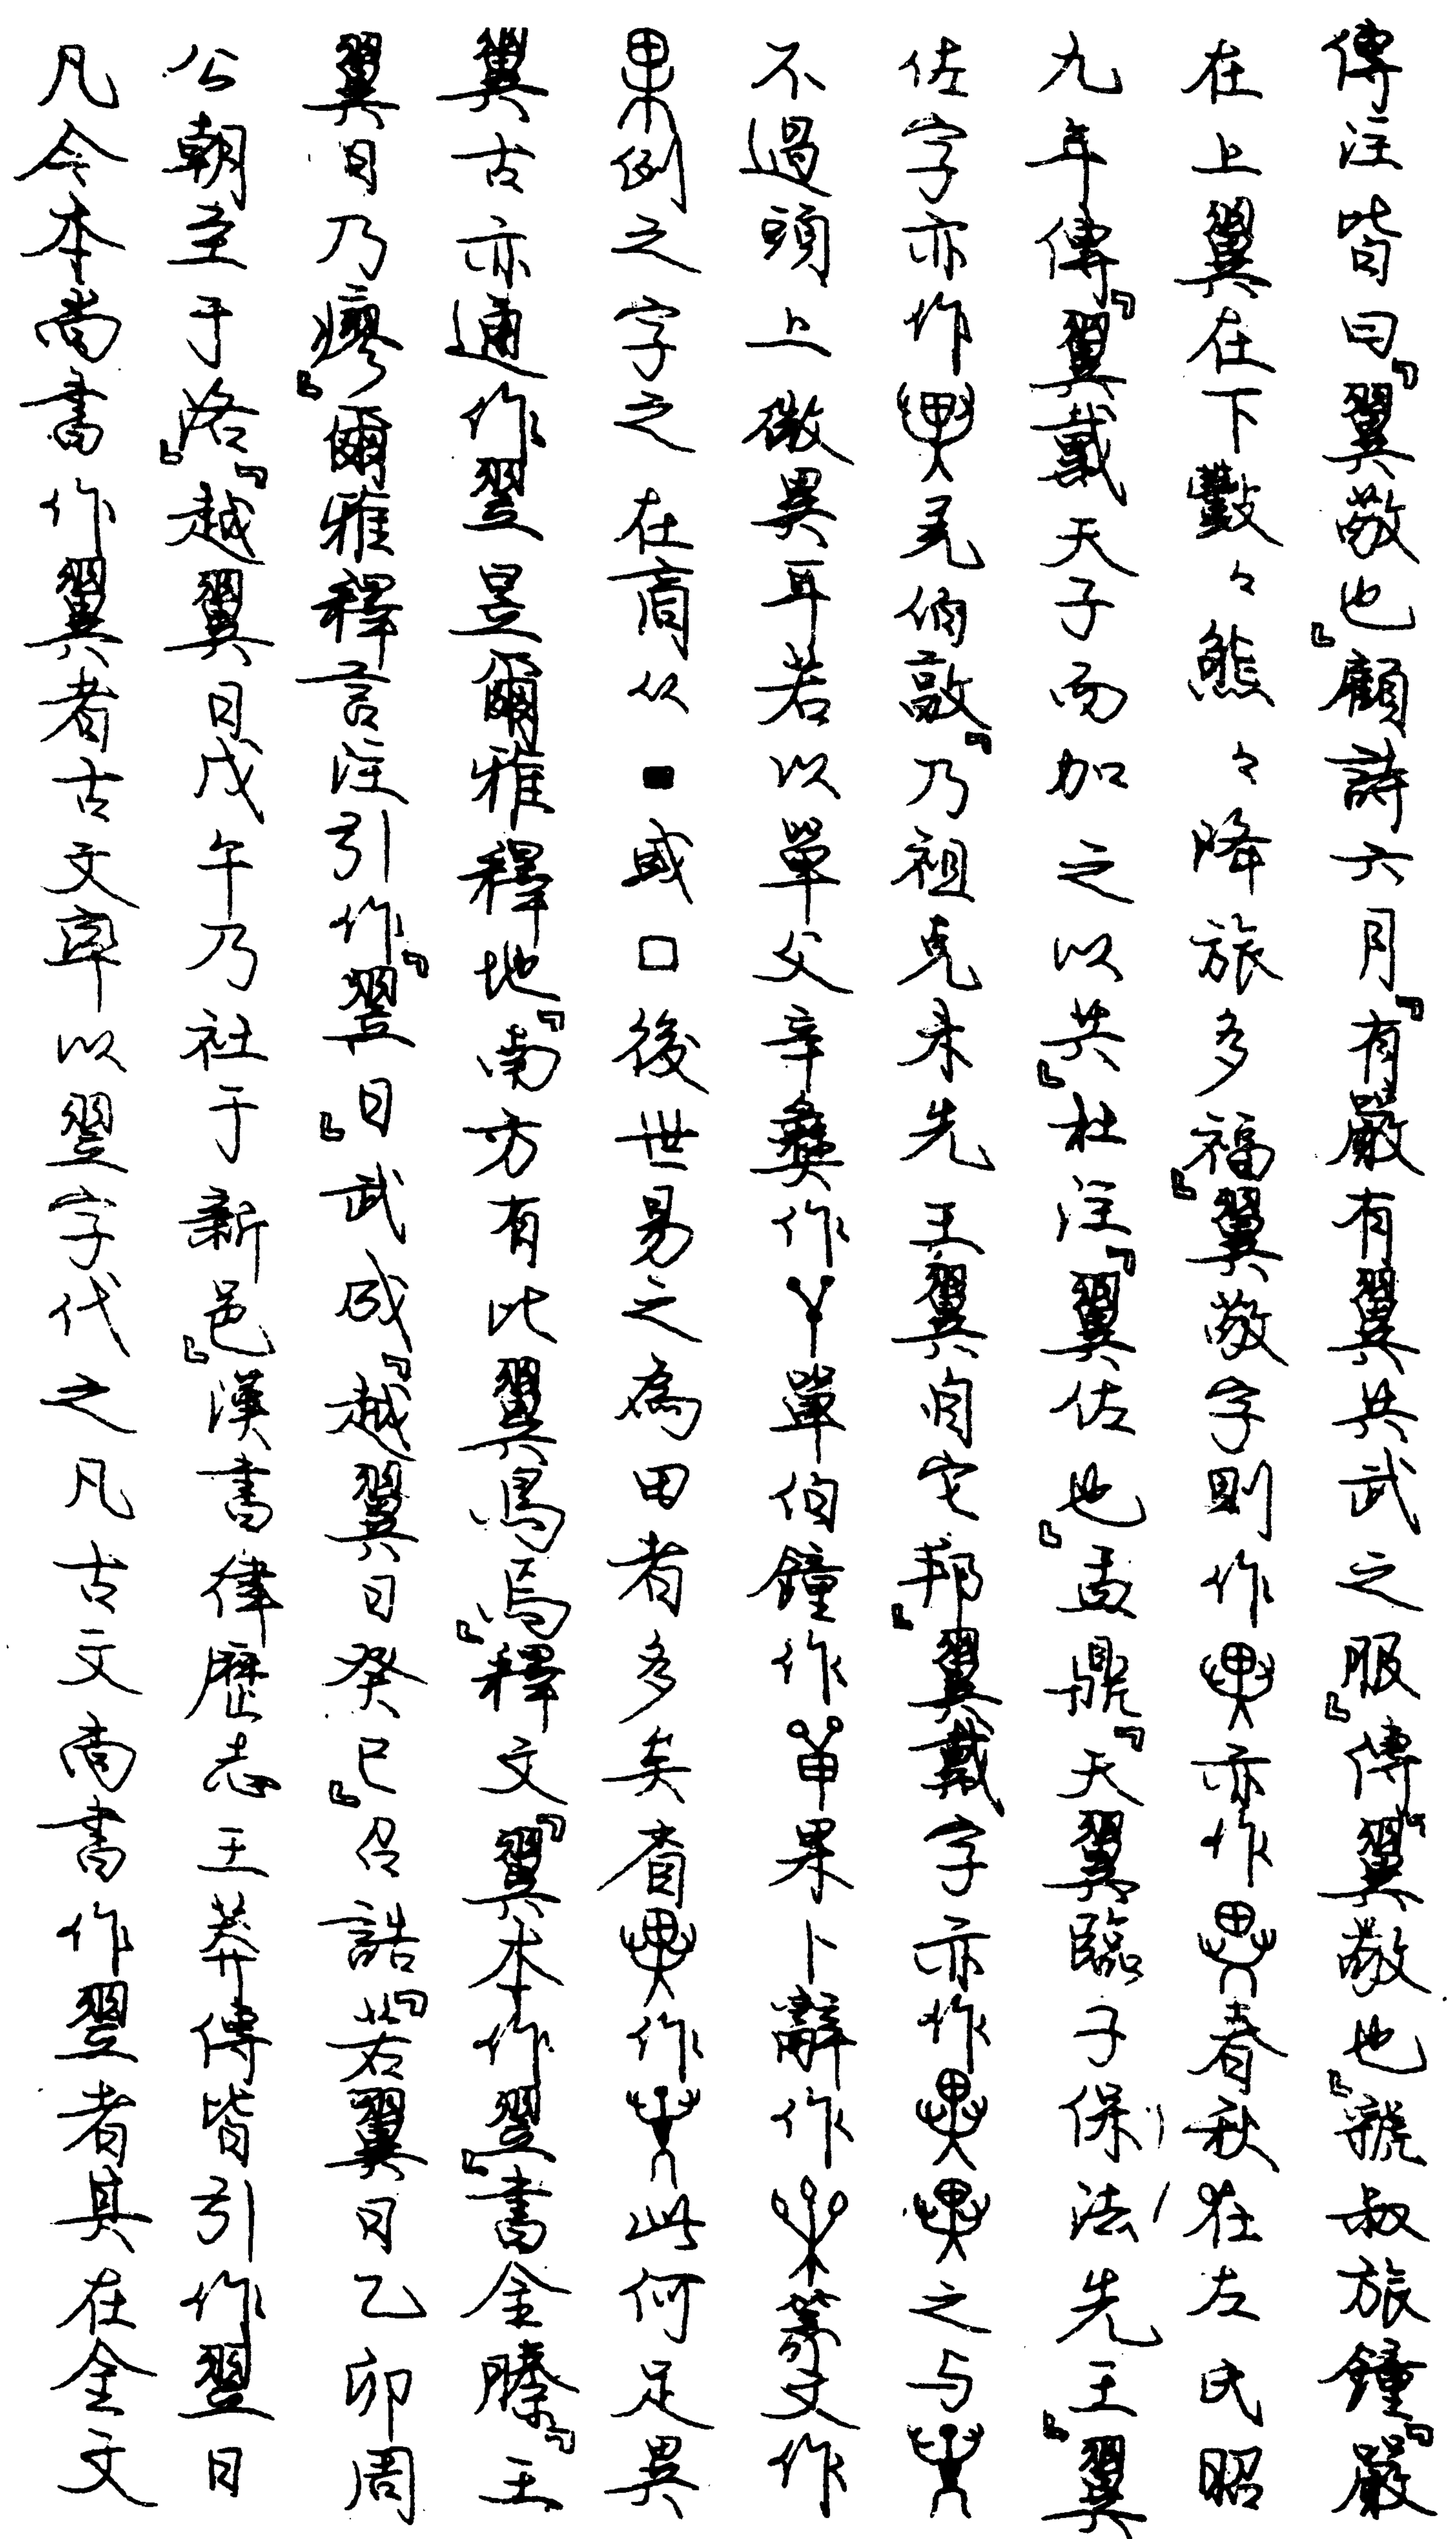 傳注皆曰『翼敬也』顧詩六月『有嚴有翼共武之服』傳『翼敬也』虢叔旅鐘『嚴
在上翼在下數々熊々降旅多福』翼敬字則作亦作春秋在左氏昭
九年傳『翼戴天子而加之以共』杜注『翼佐也』盂鼎『天翼臨子保法先王』翼
佐字亦作羌伯敦『乃祖克𠦪先王翼自它邦』翼戴字亦作之与
不過頭上微異耳若以單父辛彝作單伯鐘作果卜辭作篆文作
果例之字之在商从■或口後世易之為田者多矣畬作此何足異
翼古亦通作翌昱爾雅釋地『南方有比翼鳥焉』釋文『翼本作翌』書金縢『王
翼日乃瘳』爾雅釋言注引作『翌日』武成『越翼日癸巳』召誥『若翼日乙卯周
公朝至于洛』『越翼日戊午乃社于新邑』漢書律歷志王莽傳皆引作翌日
凡今本尚書作翼者古文率以翌字代之凡古文尚書作翌者其在金文